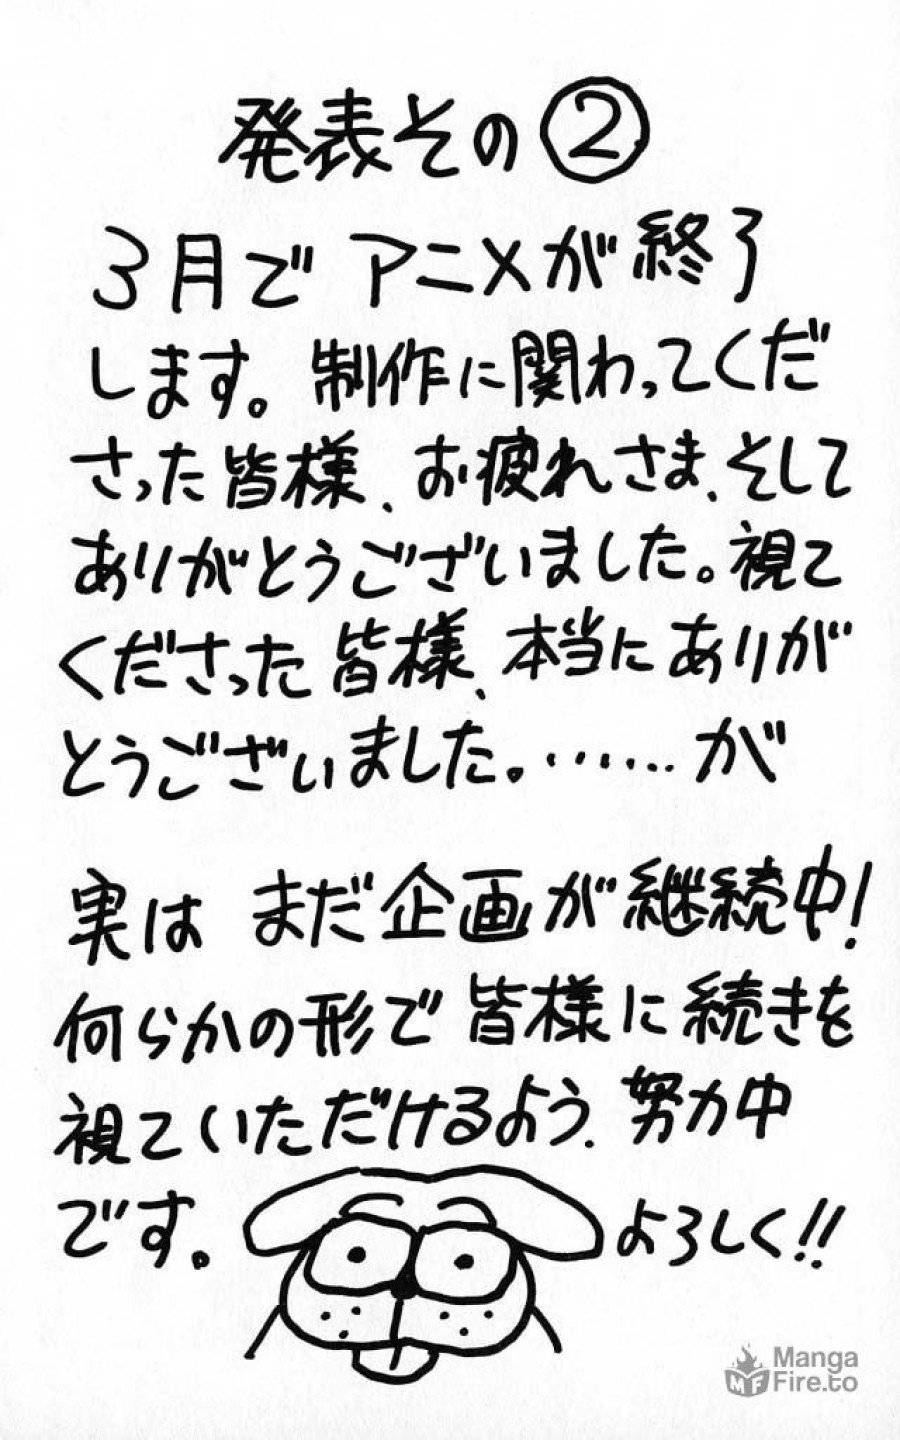 発表その②
3月でアニメが終了
します。制作に関わってくだ
さった皆様、お疲れさま、そして
ありがとうございました。視て
くださった皆様、本当にありが
とうございました。……が
実はまだ企画が継続中!
何らかの形で皆様に続きを
視ていただけるよう、努力中
です。よろしく!!
MF
Manga
Fire.to